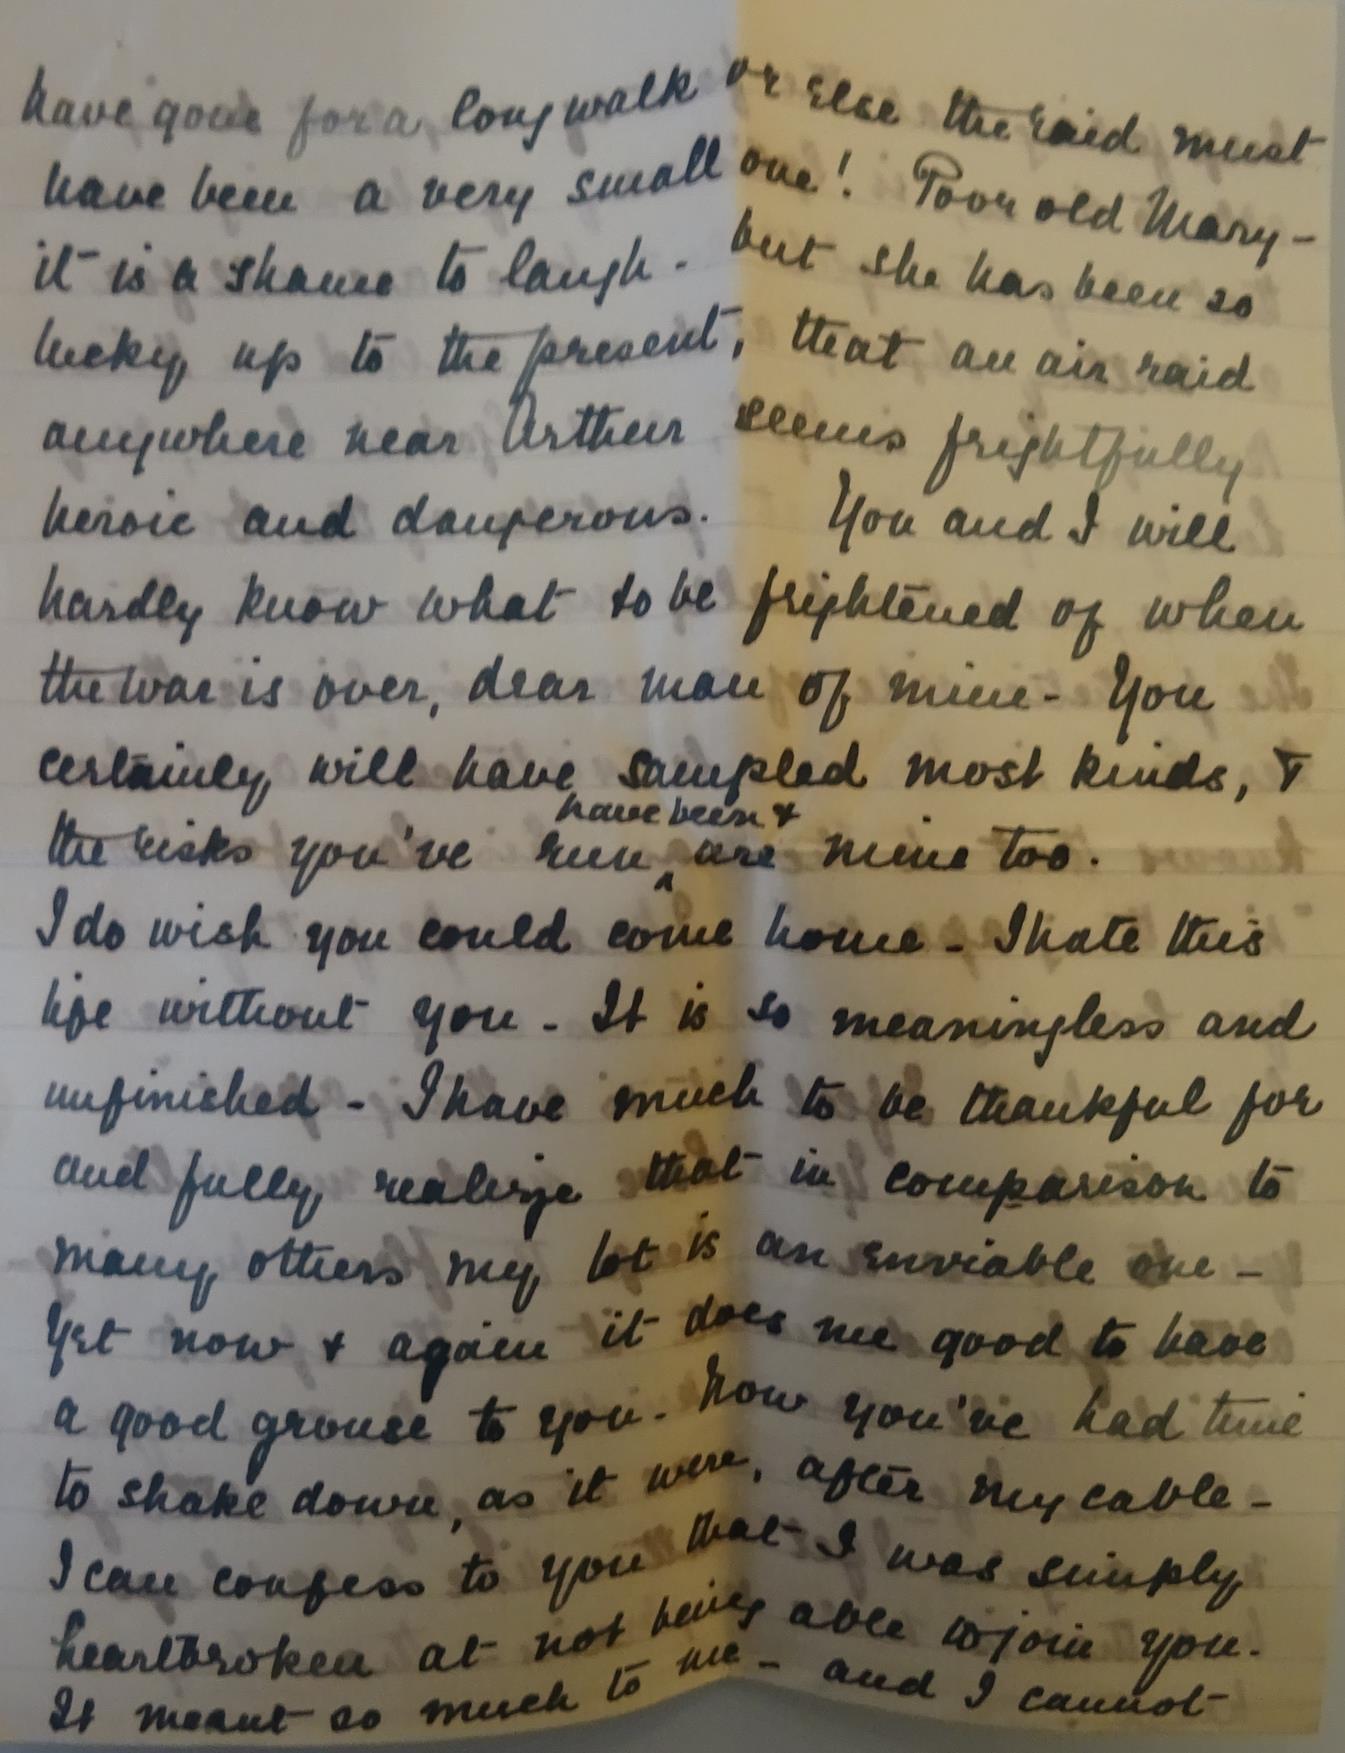 have gone for a long walk or else the raid must
have been a very small one! Poor old Mary -
it is a shame to laugh - but she has been so
lucky up to the present, that an air raid
anywhere near Arthur seems frightfully
heroic and dangerous. You and I will
hardly know what to be frightened of when
the war is over, dear man of mine - You
certainly will have sampled most kinds, &
have been &
the risks you've run ^ are mine too.
I do wish you could come home - I hate this
life without you - It is so meaningless and
unfinished - I have much to be thankful for
and fully realize that in comparison to
many others my lot is an enviable one -
Yet now & again it does me good to have
a good grouse to you - Now you've had time
to shake down, as it were, after my cable -
I can confess to you that I was simply
heartbroken at not being able to join you.
It meant so much to me - and I cannot